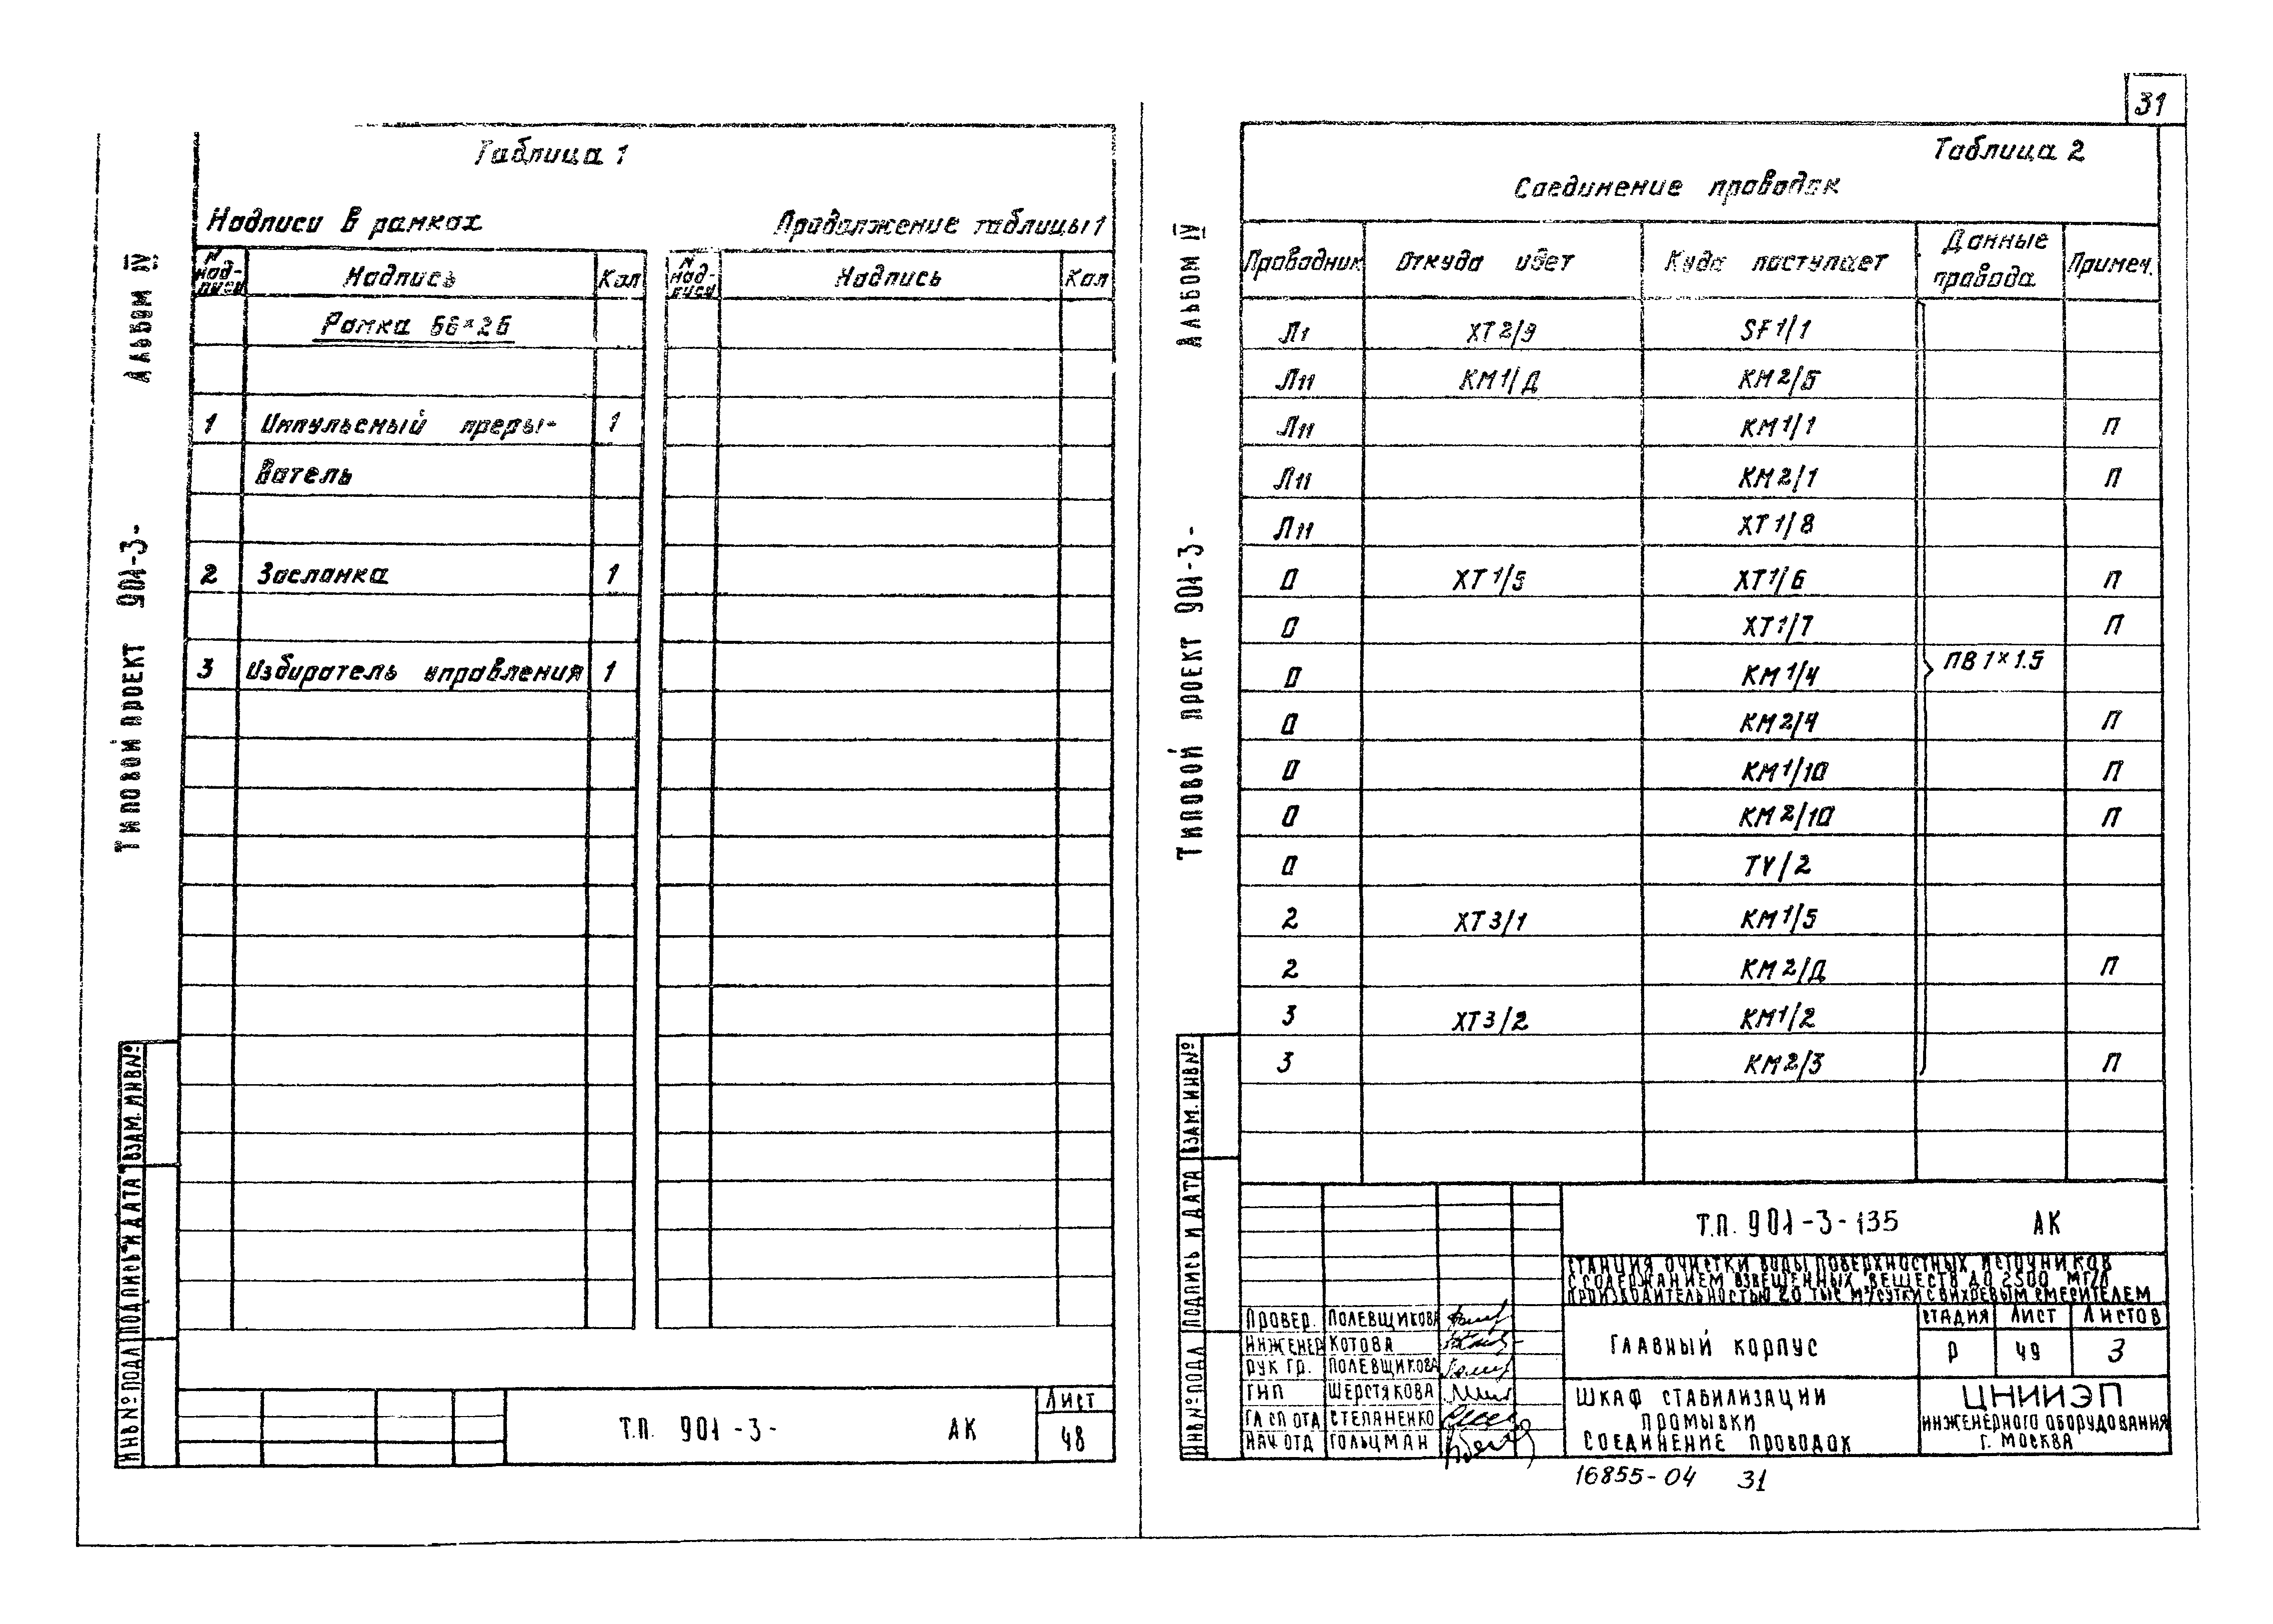 31
Альбом IV
Типовой проект 901-3-
Таблица 1
Надписи в рамках
Продолжение таблицы 1
N надписи Надпись Кол
N надписи Надпись Кол
Рамка 66×26
1 Импульсный преры- 1
ватель
2 Заслонка 1
3 Избиратель управления 1
ИНВ№ ПОДЛ ПОДПИСЬ И ДАТА ВЗАМ. ИНВ№
Т.П. 901-3- АК
Лист
48
Альбом IV
Типовой проект 901-3-
Таблица 2
Соединение проводок
Проводник Откуда идет Куда поступает Данные провода Примеч.
Л1 XT2/9 SF1/1
Л11 КМ1/Д КМ2/Б
Л11 КМ1/1 П
Л11 КМ2/1 П
Л11 XT1/8
0 XT1/5 XT1/6 П
0 XT1/7 П
0 КМ1/4 ПВ 1×1.5
0 КМ2/4 П
0 КМ1/10 П
0 КМ2/10 П
0 TV/2
2 XT3/1 КМ1/5
2 КМ2/Д П
3 XT3/2 КМ1/2
3 КМ2/3 П
ИНВ№ ПОДЛ ПОДПИСЬ И ДАТА ВЗАМ. ИНВ№
Т.П. 901-3-135 АК
СТАНЦИЯ ОЧИСТКИ ВОДЫ ПОВЕРХНОСТНЫХ ИСТОЧНИКОВ
С СОДЕРЖАНИЕМ ВЗВЕШЕННЫХ ВЕЩЕСТВ ДО 2500 МГ/Л
ПРОИЗВОДИТЕЛЬНОСТЬЮ 20 ТЫС М³/СУТКИ С ВИХРЕВЫМ СМЕСИТЕЛЕМ
ПРОВЕР. ПОЛЕВЩИКОВА
ИНЖЕНЕР КОТОВА
РУК ГР. ПОЛЕВЩИКОВА
ГИП ШЕРСТЯКОВА
ГЛ СП ОТД СТЕПАНЕНКО
НАЧ ОТД ГОЛЬЦМАН
ГЛАВНЫЙ КОРПУС
СТАДИЯ ЛИСТ ЛИСТОВ
Р 49 3
ШКАФ СТАБИЛИЗАЦИИ
ПРОМЫВКИ
СОЕДИНЕНИЕ ПРОВОДОК
ЦНИИЭП
ИНЖЕНЕРНОГО ОБОРУДОВАНИЯ
Г. МОСКВА
16855-04 31